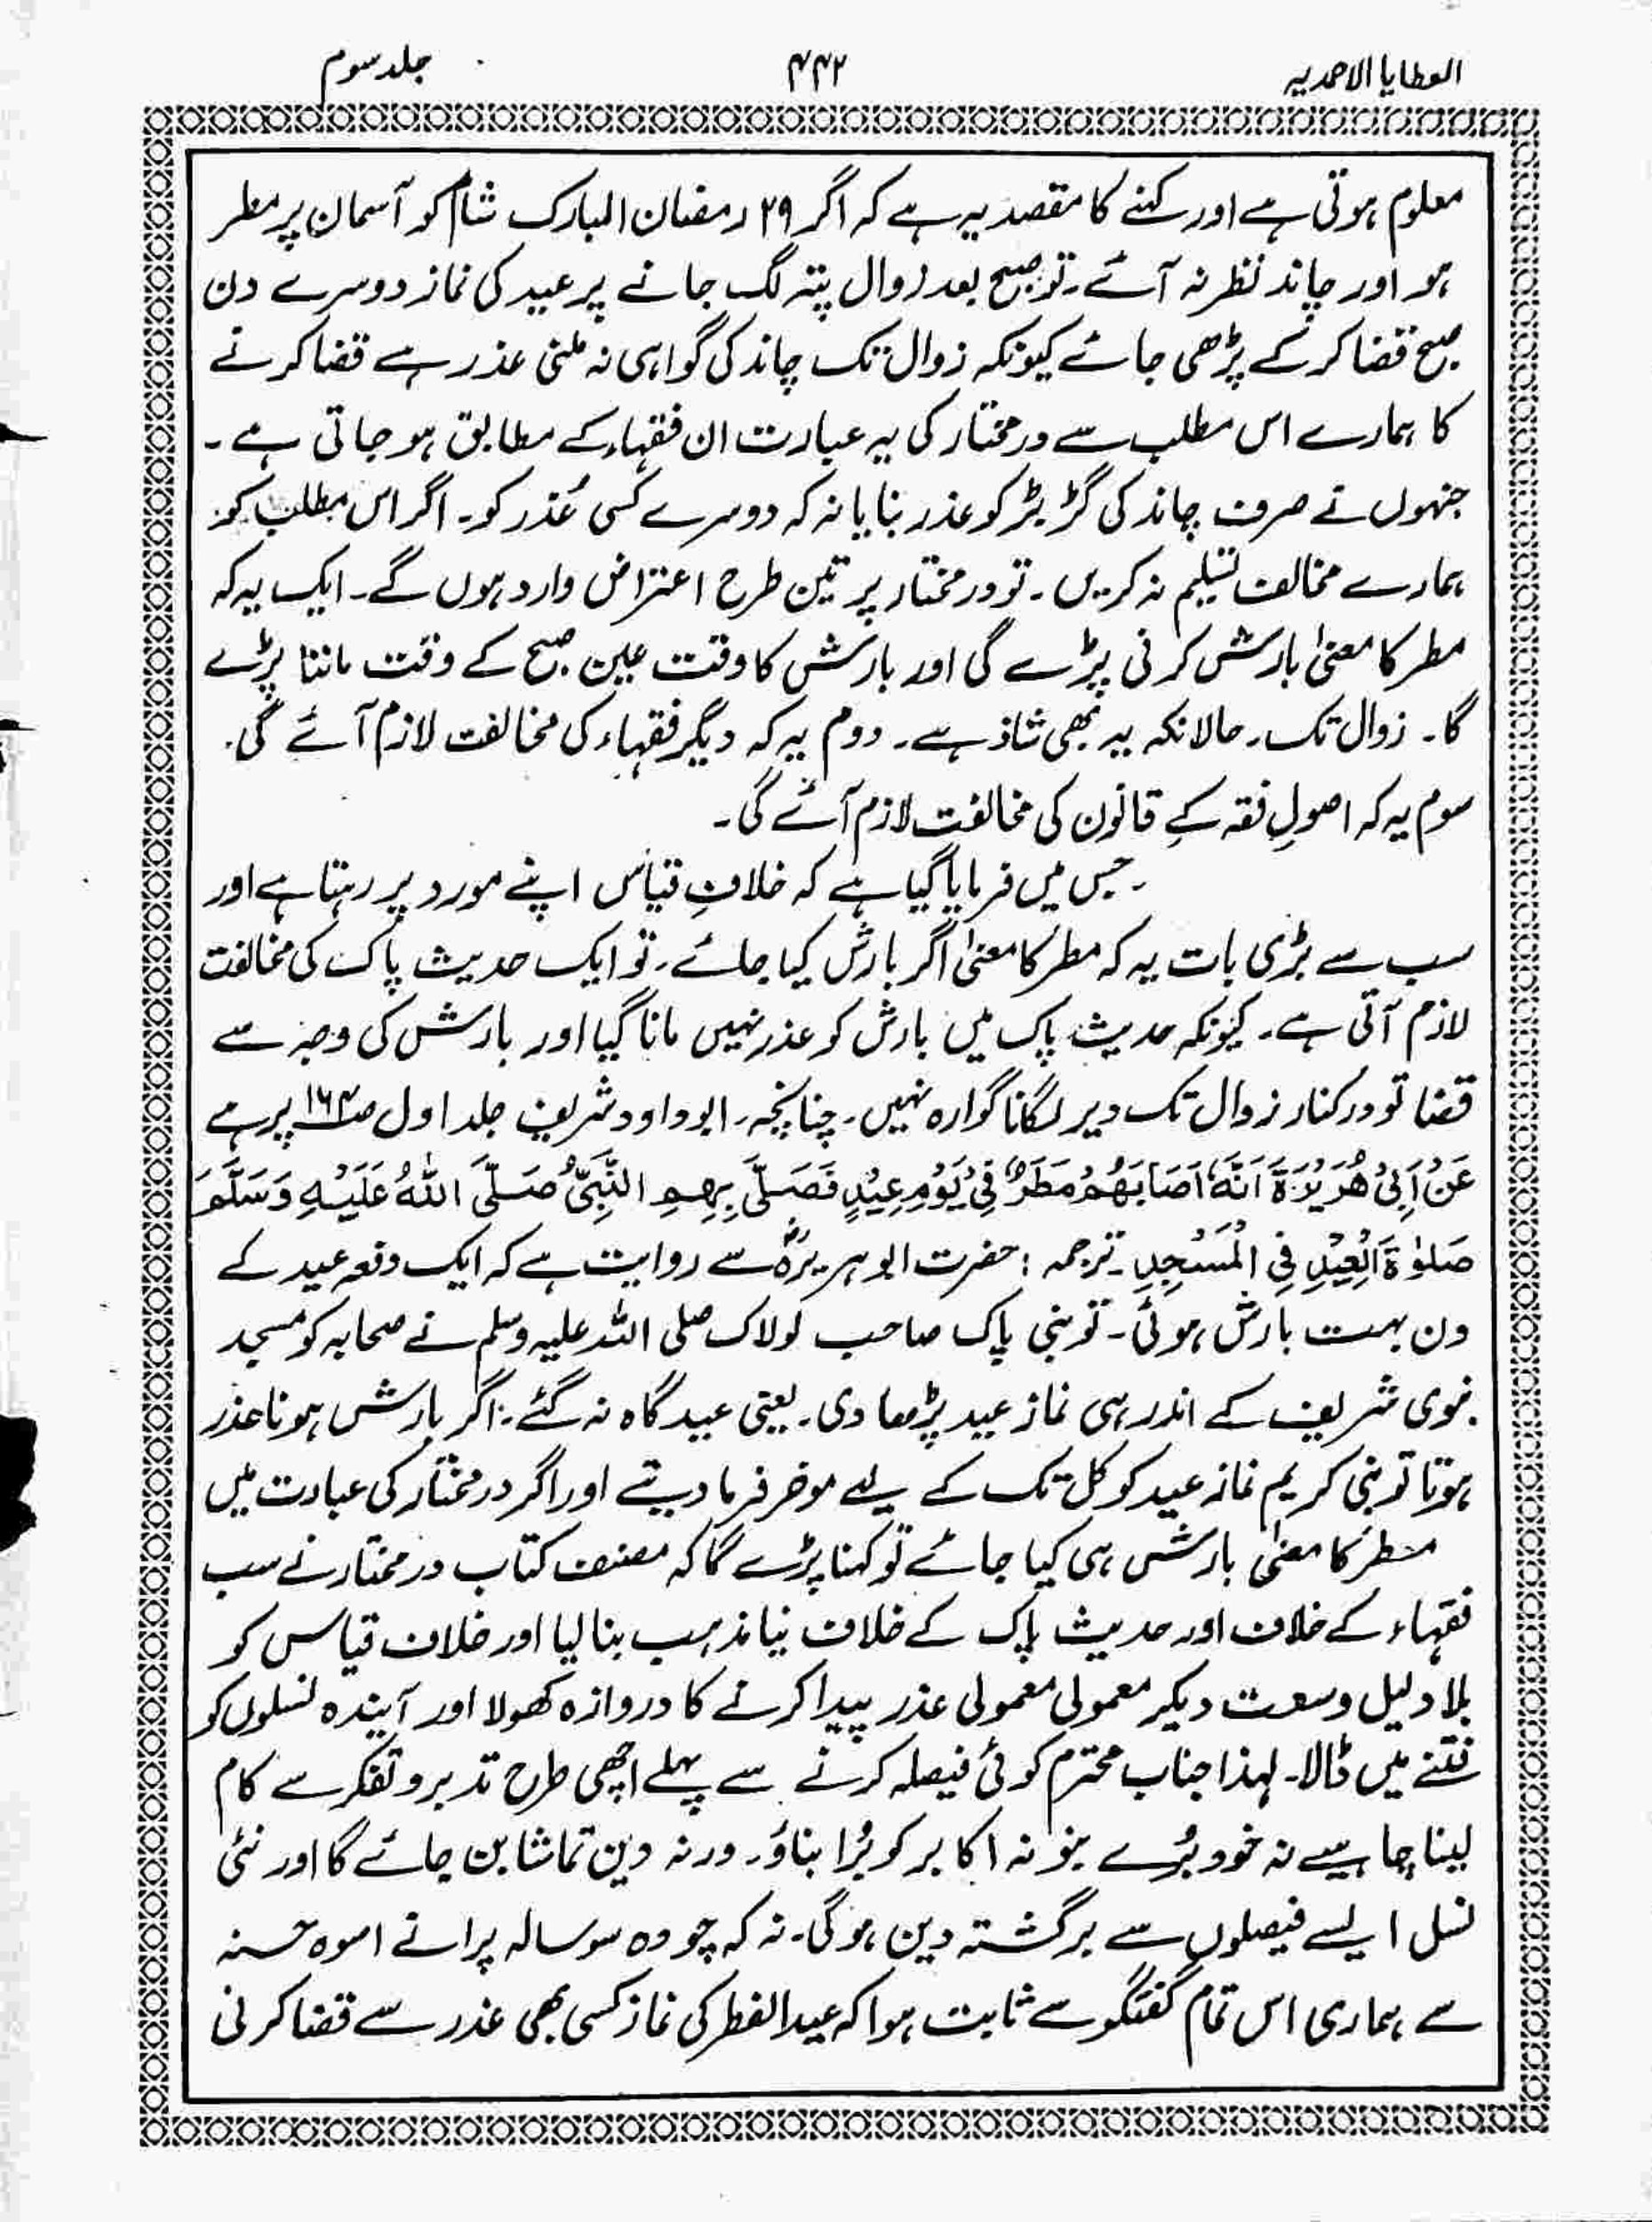 العطایا الاحمدیہ ۴۴۲ جلد سوم
معلوم ہوتی ہے اور کہنے کا مقصد یہ ہے کہ اگر ۲۹ رمضان المبارک شام کو آسمان پر مطر
ہو اور چاند نظر نہ آئے۔ تو صبح بعد زوال پتہ لگ جانے پر عید کی نماز دوسرے دن
صبح قضا کر کے پڑھی جائے کیونکہ زوال تک چاند کی گواہی نہ ملنی عذر ہے قضا کرنے
کا ہمارے اس مطلب سے درمختار کی یہ عبارت ان فقہاء کے مطابق ہو جاتی ہے۔
جنہوں نے صرف چاند کی گڑبڑ کو عذر بنایا نہ کہ دوسرے کسی عُذر کو۔ اگر اس مطلب کو
ہمارے مخالف تسلیم نہ کریں۔ تو درمختار پر تین طرح اعتراض وارد ہوں گے۔ ایک یہ کہ
مطر کا معنیٰ بارش کرنی پڑے گی اور بارش کا وقت عین صبح کے وقت ماننا پڑے
گا۔ زوال تک۔ حالانکہ یہ بھی شاذ ہے۔ دوم یہ کہ دیگر فقہاء کی مخالفت لازم آئے گی۔
سوم یہ کہ اصولِ فقہ کے قانون کی مخالفت لازم آئے گی۔
۔ جس میں فرمایا گیا ہے کہ خلافِ قیاس اپنے مورد پر رہتا ہے اور
سب سے بڑی بات یہ کہ مطر کا معنیٰ اگر بارش کیا جائے۔ تو ایک حدیث پاک کی مخالفت
لازم آتی ہے۔ کیونکہ حدیث پاک میں بارش کو عذر نہیں مانا گیا اور بارش کی وجہ سے
قضا تو درکنار زوال تک دیر لگانا گوارہ نہیں۔ چنانچہ۔ ابوداود شریف جلد اول صـ۱۶۴ پر ہے
عَنْ اَبِیْ هُرَیْرَةَ اَنَّهٗ اَصَابَهُمْ مَطَرٌ فِیْ یَوْمِ عِیْدٍ فَصَلّٰی بِهِمِ النَّبِیُّ صَلَّی اللّٰهُ عَلَیْهِ وَسَلَّمَ
صَلوٰةَ الْعِیْدِ فِی الْمَسْجِدِ۔ ترجمہ: حضرت ابو ہریرہؓ سے روایت ہے کہ ایک دفعہ عید کے
دن بہت بارش ہوئی۔ تو نبی پاک صاحب لولاک صلی اللہ علیہ وسلم نے صحابہ کو مسجد
نبوی شریف کے اندر ہی نماز عید پڑھا دی۔ یعنی عید گاہ نہ گئے۔ اگر بارش ہونا عذر
ہوتا تو نبی کریم نماز عید کو کل تک کے لیے موخر فرما دیتے اور اگر درمختار کی عبارت میں
مطر کا معنیٰ بارش ہی کیا جائے تو کہنا پڑے گا کہ مصنف کتاب درمختار نے سب
فقہاء کے خلاف اور حدیث پاک کے خلاف نیا مذہب بنا لیا اور خلاف قیاس کو
بلا دلیل وسعت دیکر معمولی معمولی عذر پیدا کرنے کا دروازہ کھولا اور آیندہ نسلوں کو
فتنے میں ڈالا۔ لہذا جناب محترم کوئی فیصلہ کرنے سے پہلے اچھی طرح تدبر و تفکر سے کام
لینا چاہیے نہ خود بُرے بنو نہ اکابر کو بُرا بناؤ۔ ورنہ دین تماشا بن جائے گا اور نئی
نسل ایسے فیصلوں سے برگشتہ دین ہوگی۔ نہ کہ چودہ سو سالہ پرانے اسوہ حسنہ
سے ہماری اس تمام گفتگو سے ثابت ہوا کہ عید الفطر کی نماز کسی بھی عذر سے قضا کرنی